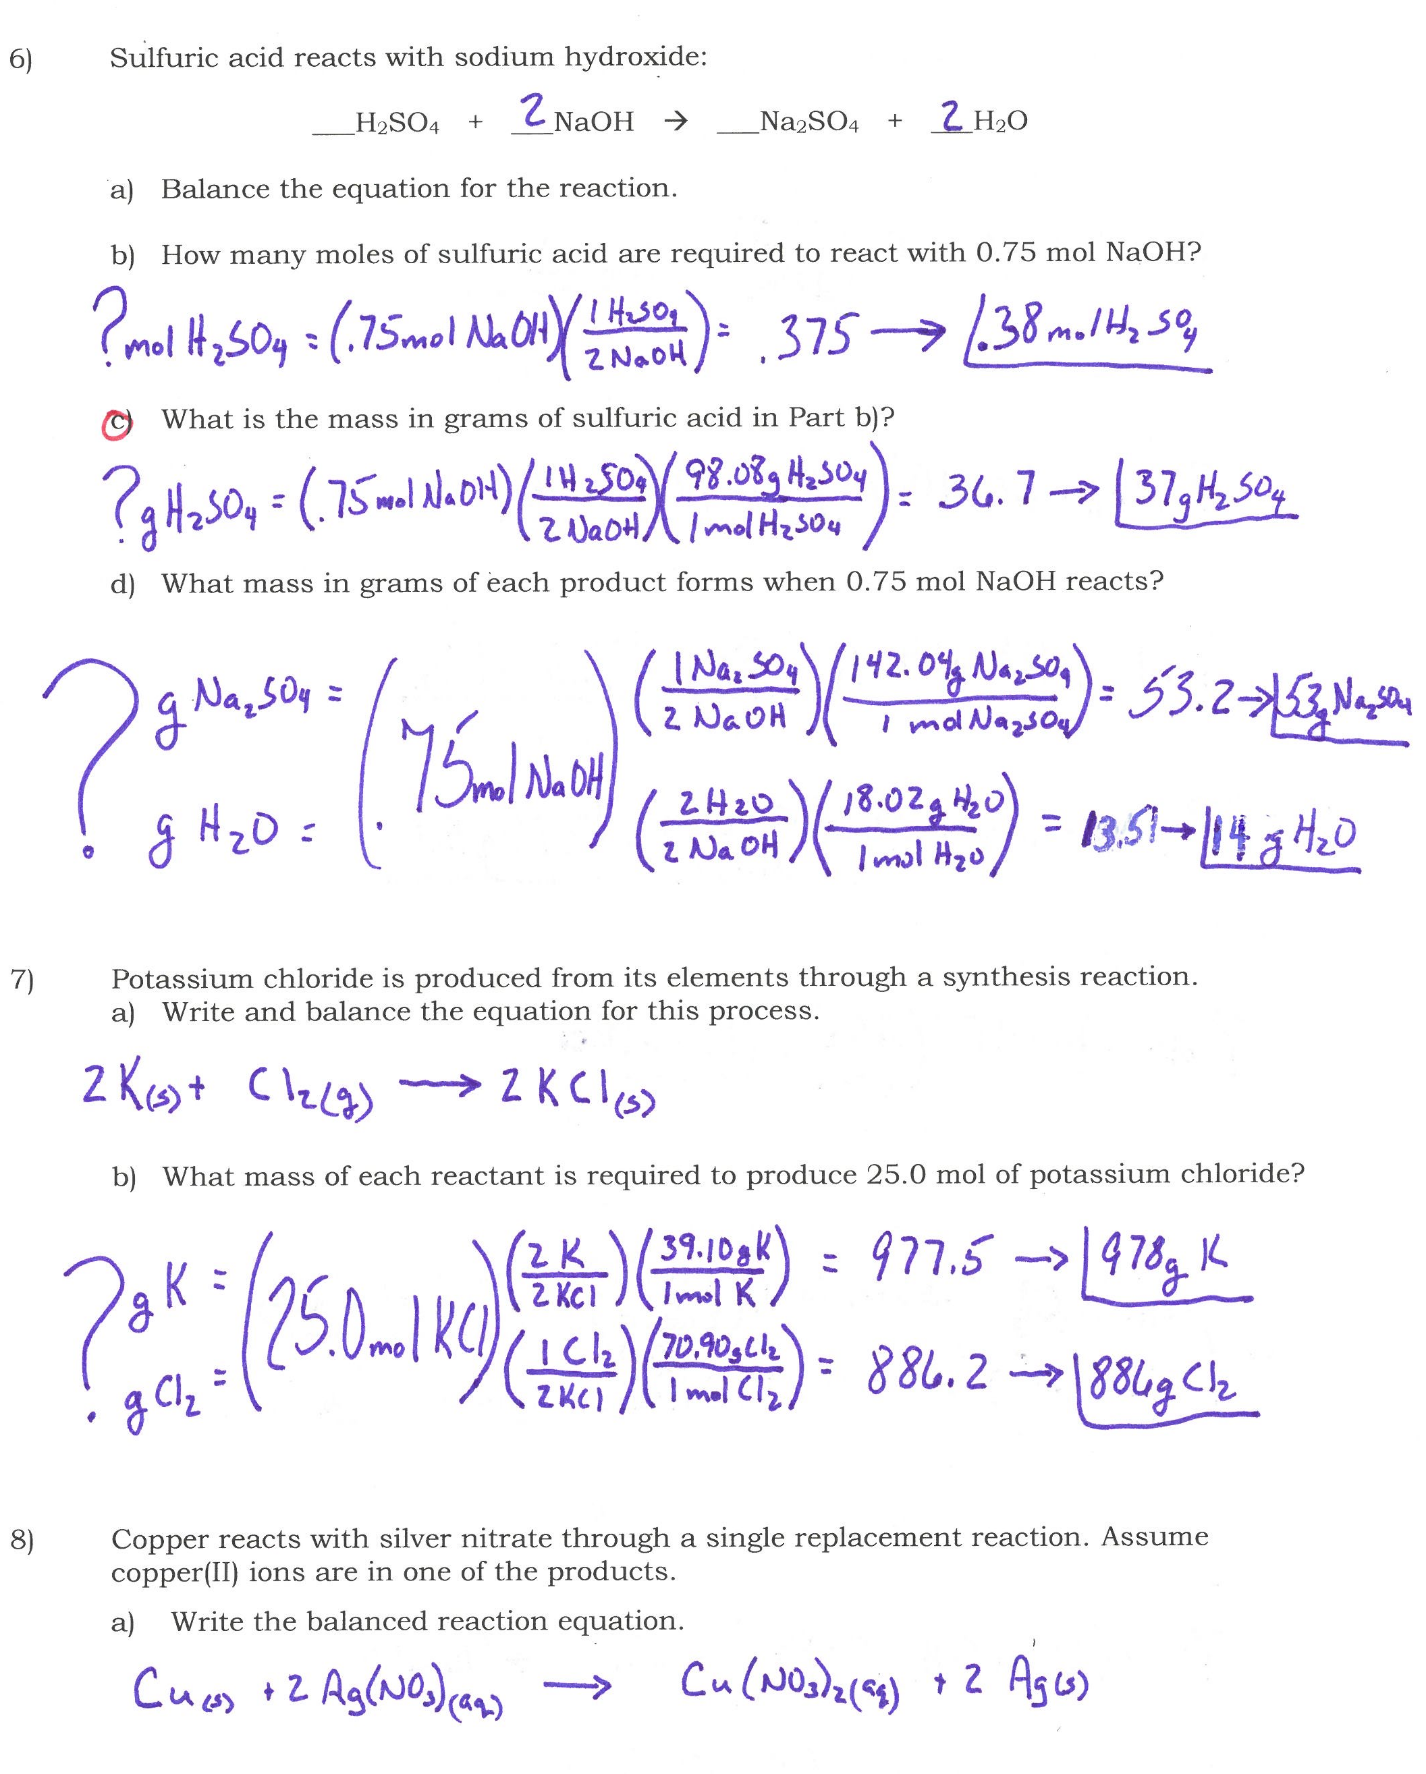 6) Sulfuric acid reacts with sodium hydroxide:
___H₂SO₄ + 2 NaOH → ___Na₂SO₄ + 2 H₂O
a) Balance the equation for the reaction.
b) How many moles of sulfuric acid are required to react with 0.75 mol NaOH?
? mol H₂SO₄ = (.75 mol NaOH)(1 H₂SO₄ / 2 NaOH) = .375 → .38 mol H₂SO₄
c) What is the mass in grams of sulfuric acid in Part b)?
? g H₂SO₄ = (.75 mol NaOH)(1 H₂SO₄ / 2 NaOH)(98.08 g H₂SO₄ / 1 mol H₂SO₄) = 36.7 → 37 g H₂SO₄
d) What mass in grams of each product forms when 0.75 mol NaOH reacts?
? g Na₂SO₄ = (.75 mol NaOH)(1 Na₂SO₄ / 2 NaOH)(142.04 g Na₂SO₄ / 1 mol Na₂SO₄) = 53.2 → 53 g Na₂SO₄
g H₂O = (2 H₂O / 2 NaOH)(18.02 g H₂O / 1 mol H₂O) = 13.51 → 14 g H₂O
7) Potassium chloride is produced from its elements through a synthesis reaction.
a) Write and balance the equation for this process.
2 K(s) + Cl₂(g) → 2 KCl(s)
b) What mass of each reactant is required to produce 25.0 mol of potassium chloride?
? g K = (25.0 mol KCl)(2 K / 2 KCl)(39.10 g K / 1 mol K) = 977.5 → 978 g K
g Cl₂ = (1 Cl₂ / 2 KCl)(70.90 g Cl₂ / 1 mol Cl₂) = 886.2 → 886 g Cl₂
8) Copper reacts with silver nitrate through a single replacement reaction. Assume
copper(II) ions are in one of the products.
a) Write the balanced reaction equation.
Cu(s) + 2 Ag(NO₃)(aq) → Cu(NO₃)₂(aq) + 2 Ag(s)